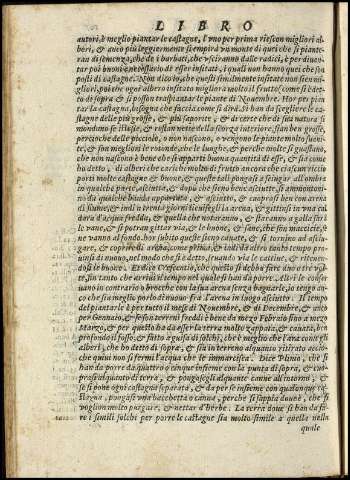 LIBRO
autori, è meglio piantar le castagne, l'uno per prima riescon migliori al-
beri, & anco più leggiermente si empirà un monte di quei che si piante-
ran di semenza, che de i barbati, che usciranno dalle radici, è per diuen-
tar poi buoni è necessario di esser insitati, i quali non hanno quei che son
posti di castagne. Non dico io, che questi similmente insitate non sien mi-
gliori, poi che ogni albero insitato migliora molto il frutto, come s'è det-
to di sopra & si posson traspiantar le piante di Nouembre. Hor per pian-
tar le castagne, bisogna che faccia, come si dirà. Si han da scegliere le ca-
stagne delle più grosse, & più saporite, & di certe che di sua natura si
mondano
percioche delle picciole, o non nascono, o vengono le piante molto
& son megliori le ritonde, che le lunghe, & perche molte si guastano,
che non nascono è bene che si apparti buona quantità di esse, & sia come
ho detto, di alberi che carichi molto di frutto ancora che ciascun riccio
porti molte castagne & buone, & queste tali pongasi à sciugar all'ombra
in qualche parte, asciutta, & dopo che sieno bene asciutte, si ammontoni-
no da qualche banda appartata, & asciutta, & cuopransi ben con arena
di fiume, & indi à trenta giorni discuoprasi
l'arena, & gittinsi in vna cal
dara d'acqua fredda, & quelle che notaranno, & staranno à galla sarā
le vane, & si potran gittar via, & le buone, & sane, che sien massiccie, se
ne vanno al fondo. hor subito queste sieno cauate, & si tornino ad asciu-
gare, & coprir di arena, come prima, & indi da altri tanti tempo pruo-
uinsi di nuouo, nel modo che si è detto, leuando via le cattiue, & ritenen-
dosi le buone. Et dice
che questo si debba fare due o tre vol-
te, sin tanto che arriui il tempo nel quale si han da porre. Altri le conser-
uano in contrario à brocche con la sua arena senza bagnarle, io tengo an-
co che sia meglio porlo di nuouo fra l'arena in luogo asciutto. Il tempo
del piantarle è per tutto il mese di Nouembre, & di Decembre, & anco
per Gennaio, & essendo terreni freddi è bene da mezo Febraio sino a mezo
Marzo, & per questo ha da esser la terra molto zappata, & cauata, ben
profondo il fosso, & fatto a guisa di solchi, che è meglio che l'ara con gli
alberi, che ho detto di sopra, & sia in terreno alquanto ritirato accio-
che quiui non si fermi l'acqua che le immarcisca. Dice Plinio, che si
han da porre da quattro o cinque insieme con la punta di sopra, & cuo-
pransi alquanto di terra, & pongasegli alquante canne all'intorno, &
se si pone ogni castagna separata, & da per se insieme con qualunque ca-
stagna, pongasi vna bacchetta o canna, perche si sappia dou'è, che si
vogliono molto purgare, & nettar d'herbe. La terra doue si han da fa-
re i simili solchi per porre le castagne sia molto simile à quella nella
quale